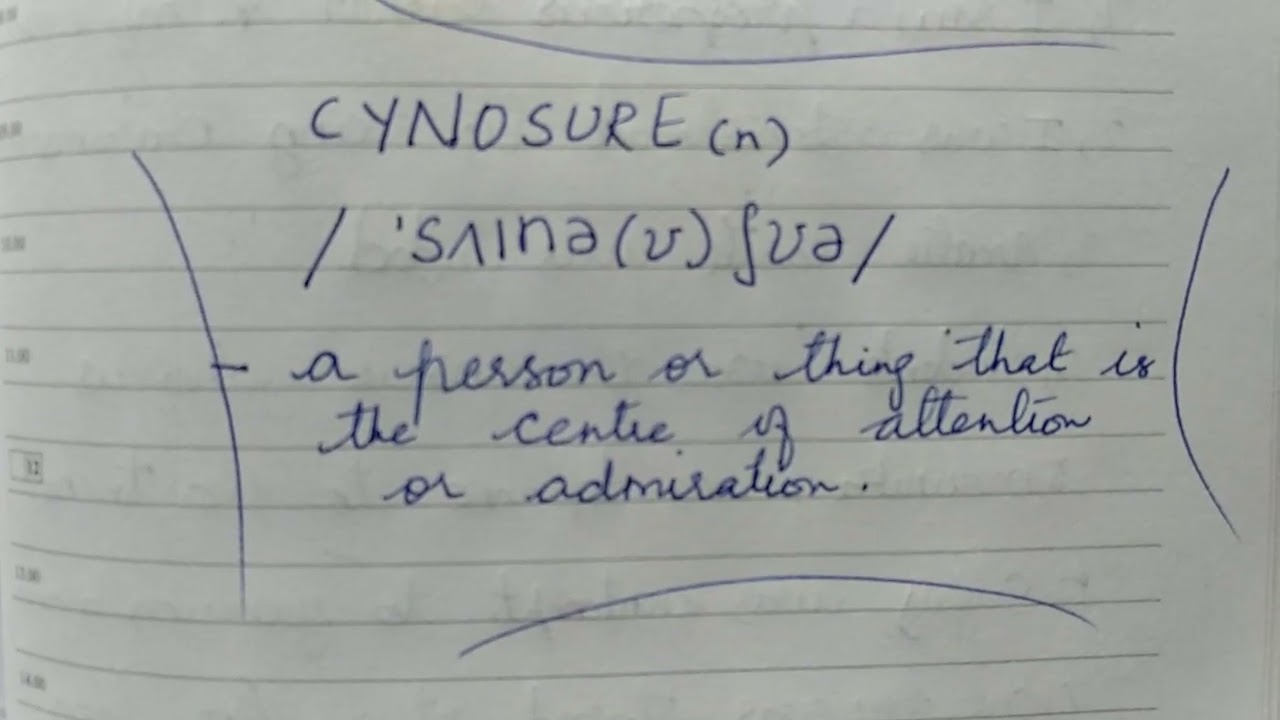 CYNOSURE (n)
/ˈsʌɪnə(ʊ)ʃʊə/
- a person or thing that is
the centre of attention
or admiration.
12
13.00
14.00